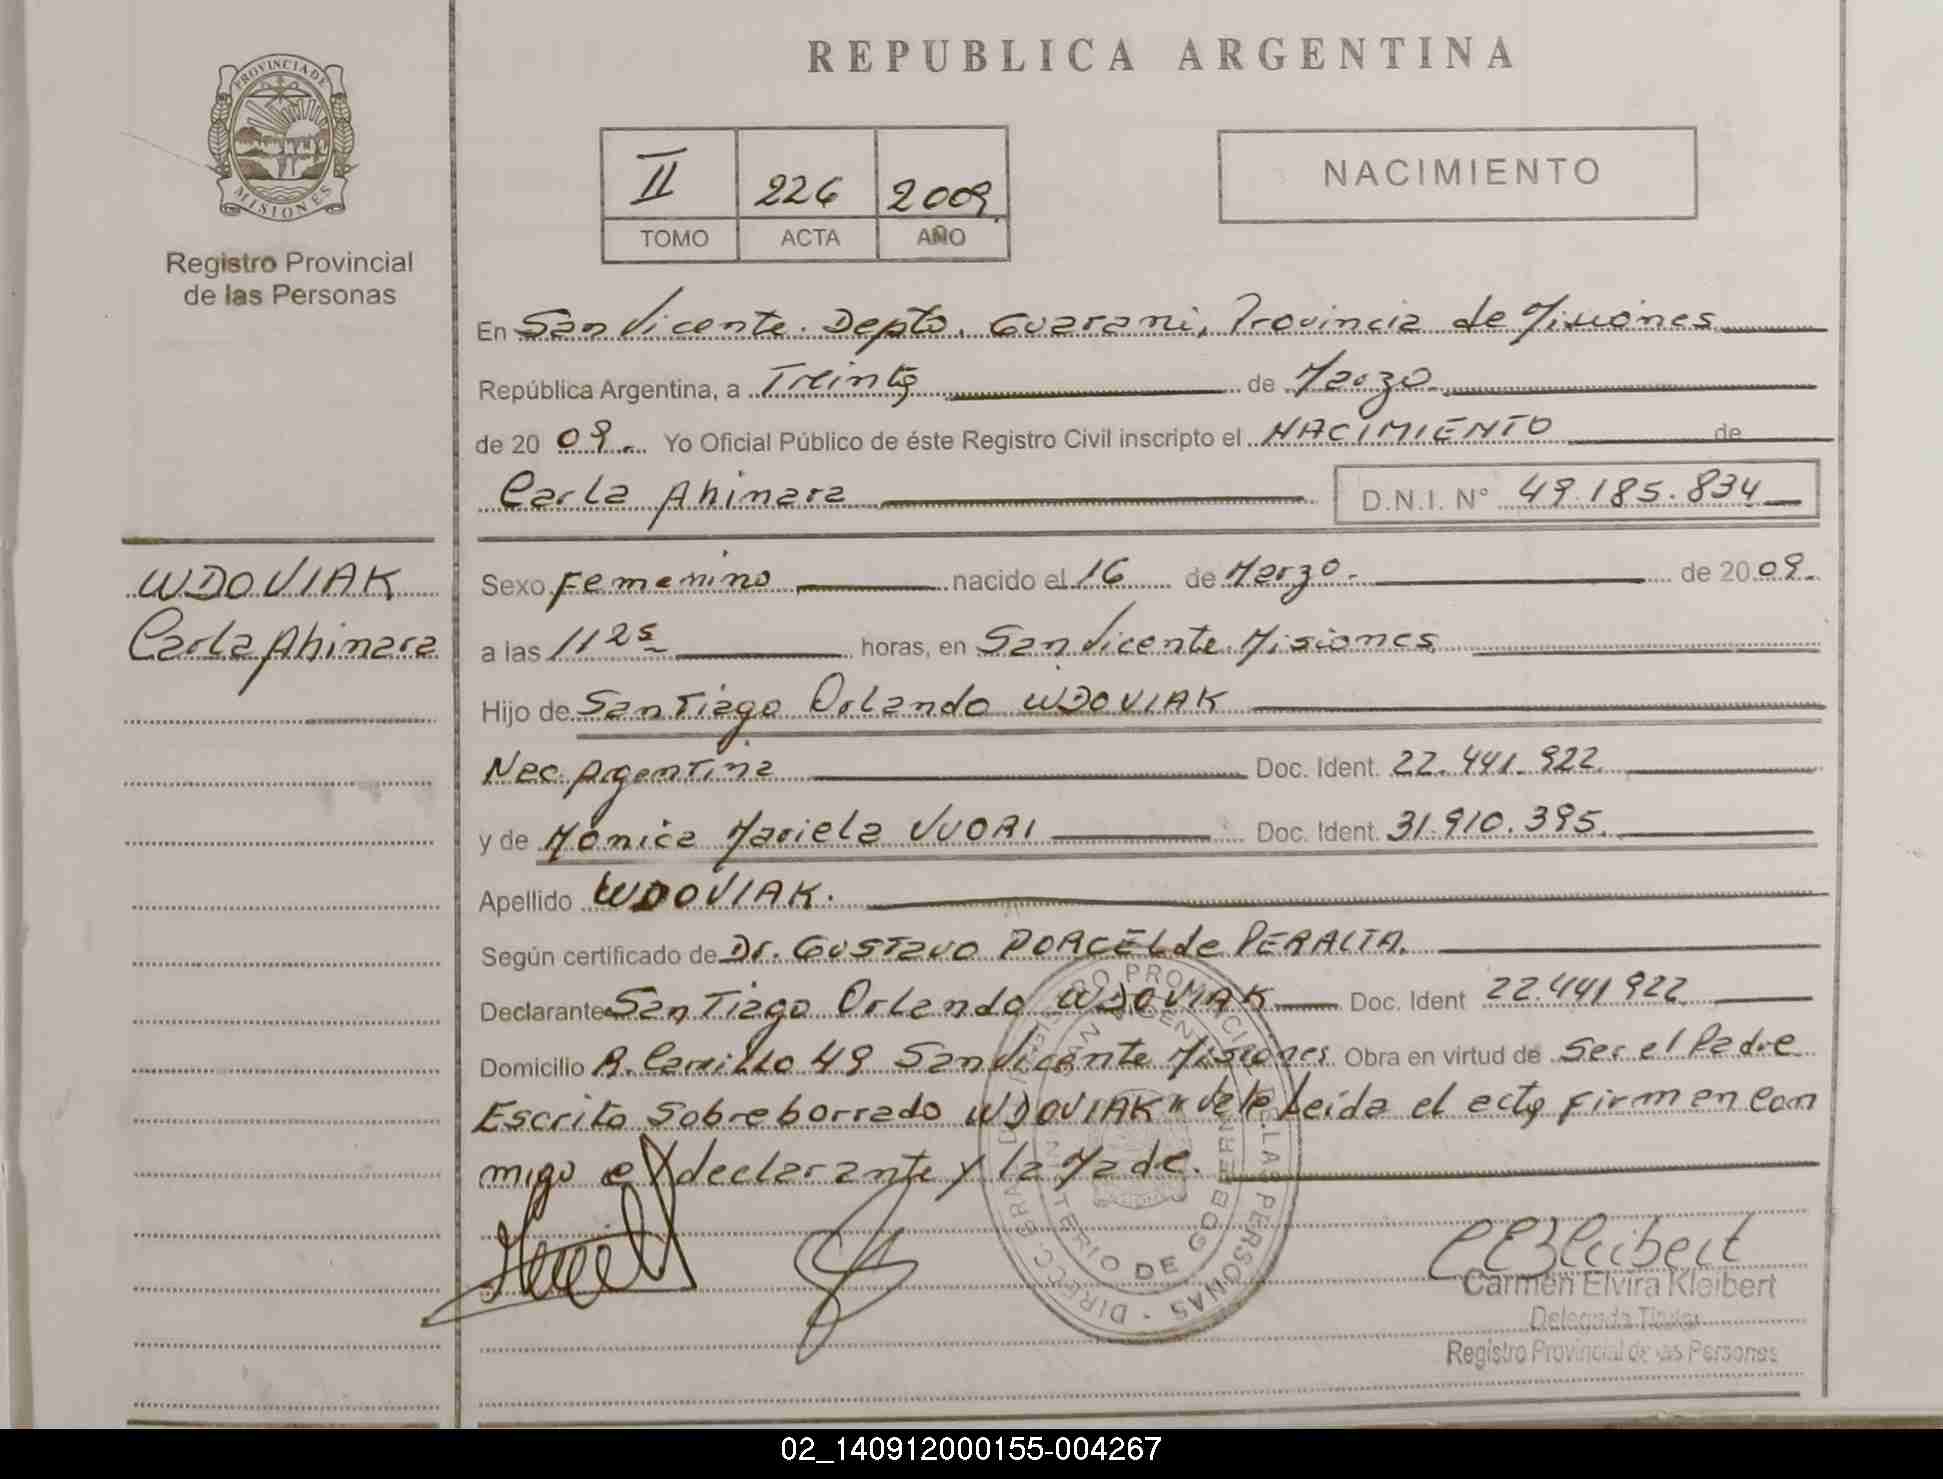 REPUBLICA ARGENTINA
PROVINCIA DE
MISIONES
Registro Provincial
de las Personas
II 226 2009
TOMO ACTA AÑO
NACIMIENTO
En San Vicente. Depto. Guarani, Provincia de Misiones
República Argentina, a Treinta de Marzo
de 20 09. Yo Oficial Público de éste Registro Civil inscripto el NACIMIENTO de
Carla Ahinara D.N.I. N° 49.185.834
WDOVIAK
Carla Ahinara
Sexo Femenino nacido el 16 de Marzo. de 2009.
a las 11 25 horas, en San Vicente. Misiones
Hijo de Santiago Orlando WDOVIAK
Nac. Argentina Doc. Ident. 22.441.922
y de Mónica Mariela VUORI Doc. Ident. 31.910.395.
Apellido WDOVIAK.
Según certificado de Dr. Gustavo PORCEL de PERALTA.
Declarante Santiago Orlando WDOVIAK Doc. Ident 22.441922
Domicilio R. Carrillo 49 San Vicente Misiones Obra en virtud de Ser el Padre
Escrito Sobreborrado WDOVIAK" Vale Leída el acta firman con
migo el declarante y la Madre.
PERSONAS
MINISTERIO DE GOBIERNO
CEKleibert
Carmen Elvira Kleibert
Delegada Titular
Registro Provincial de las Personas
02_140912000155-004267